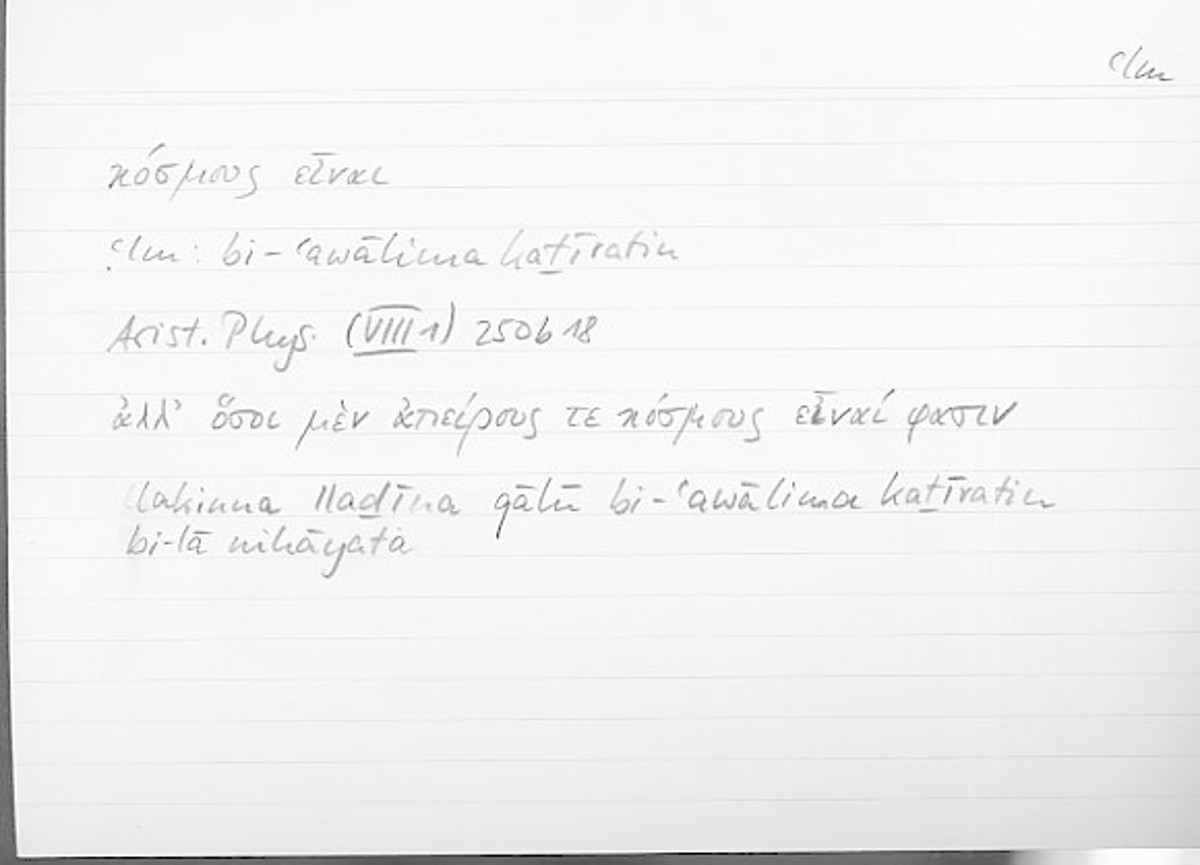 ʿlm
κόσμους εἶναι
ʿlm: bi-ʿawālima kaṯīratin
Arist. Phys. (VIII 1) 250b18
ἀλλ’ ὅσοι μὲν ἀπείρους τε κόσμους εἶναί φασιν
lakinna llaḏīna qālū bi-ʿawālima kaṯīratin
bi-lā nihāyata